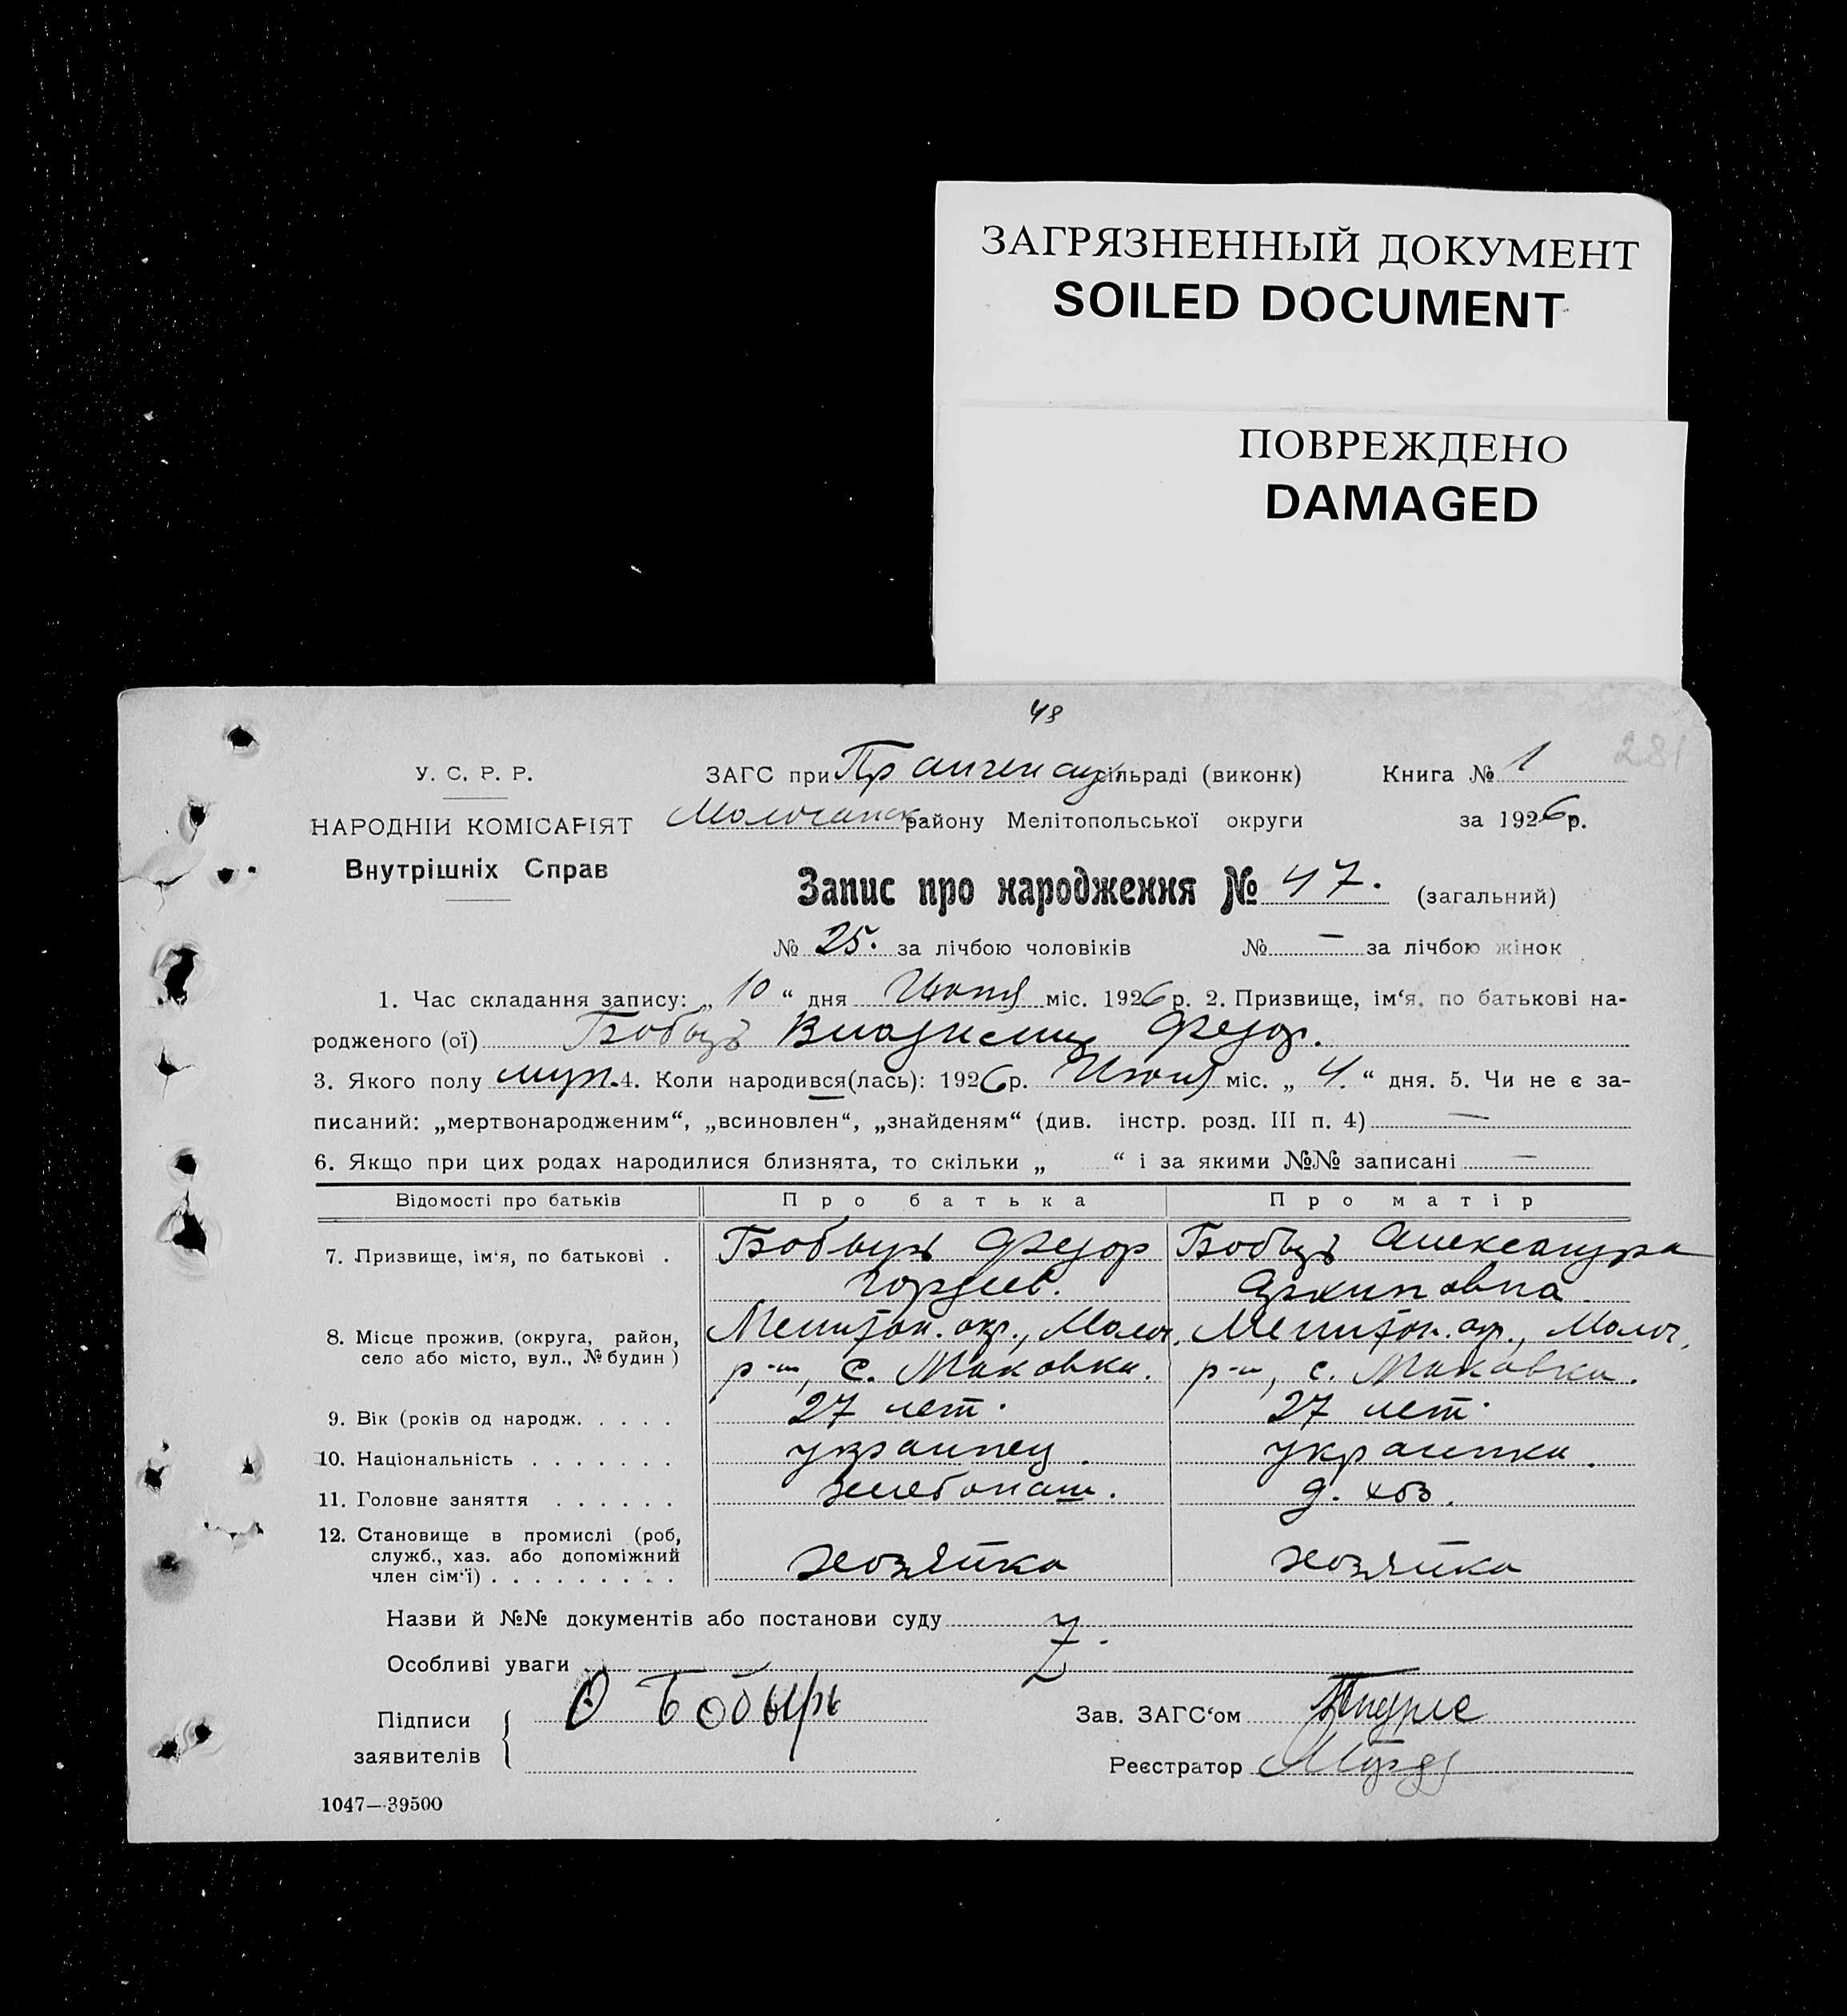 ЗАГРЯЗНЕННЫЙ ДОКУМЕНТ
SOILED DOCUMENT
ПОВРЕЖДЕНО
DAMAGED
48
281
У. С. Р. Р.
ЗАГС при сільраді (виконк) Книга № 1
НАРОДНІЙ КОМІСАРІЯТ
Молочанск району Мелітопольської округи за 1926 р.
Внутрішніх Справ
Запис про народження № 47. (загальний)
№ 25. за лічбою чоловіків № — за лічбою жінок
1. Час складання запису: „ 10 “ дня міс. 1926 р. 2. Призвище, ім‘я, по батькові на-
родженого (ої) Владисмир Федор.
3. Якого полу муж. 4. Коли народився(лась): 1926 р. міс. „ 4. “ дня. 5. Чи не є за-
писаний: „мертвонародженим“, „всиновлен“, „знайденям“ (див. інстр. розд. III п. 4) —
6. Якщо при цих родах народилися близнята, то скільки „ “ і за якими №№ записані —
Відомості про батьків Про батька Про матір
7. Призвище, ім‘я, по батькові . Федор Александра
Гордеев. Архиповна
8. Місце прожив. (округа, район, Мелитоп. окр., Молоч. Мелитоп. окр., Молоч.
село або місто, вул., № будин ) р-н, с. Маковка. р-н, с. Маковка.
9. Вік (років од народж. . . . . 27 лет. 27 лет.
10. Національність . . . . . . . украинец. украинка.
11. Головне заняття . . . . . . хлебопаш. д. хоз.
12. Становище в промислі (роб,
служб., хаз. або допоміжний хозяйка хозяйка
член сім‘ї) . . . . . . . . .
Назви й №№ документів або постанови суду
Особливі уваги
Підписи Бобырь Зав. ЗАГС‘ом
заявителів Реєстратор
1047—39500